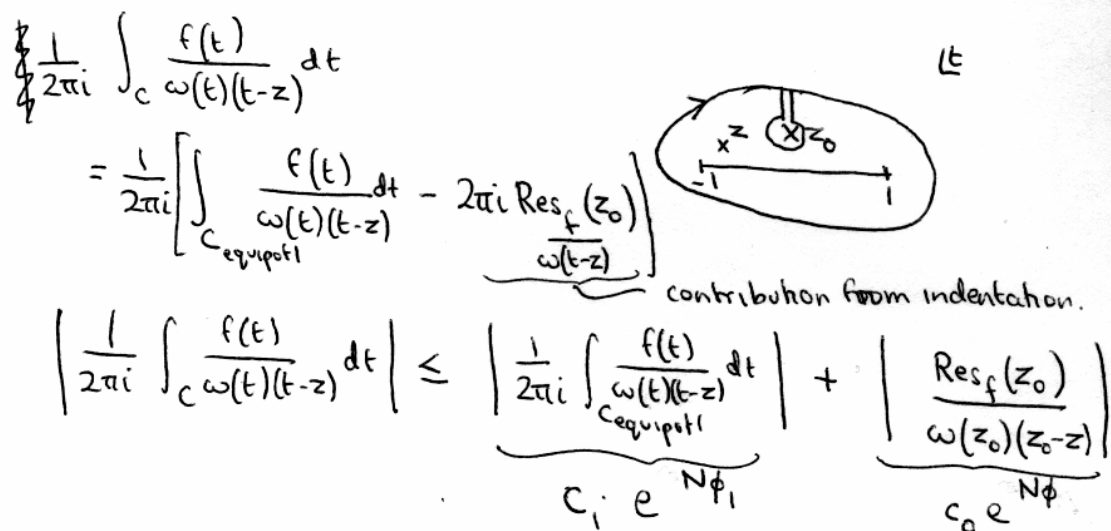 1/2πi ∫_C f(t)/ω(t)(t-z) dt
= 1/2πi [ ∫_{C equipotl} f(t)/ω(t)(t-z) dt - 2πi Res_{f/ω(t-z)} (z₀) ]
Lt
x z
x z₀
-1 1
contribution from indentation.
| 1/2πi ∫_C f(t)/ω(t)(t-z) dt | ≤ | 1/2πi ∫_{C equipotl} f(t)/ω(t)(t-z) dt | + | Res_f(z₀)/ω(z₀)(z₀-z) |
C₁ e^{Nϕ₁} c₀ e^{Nϕ}